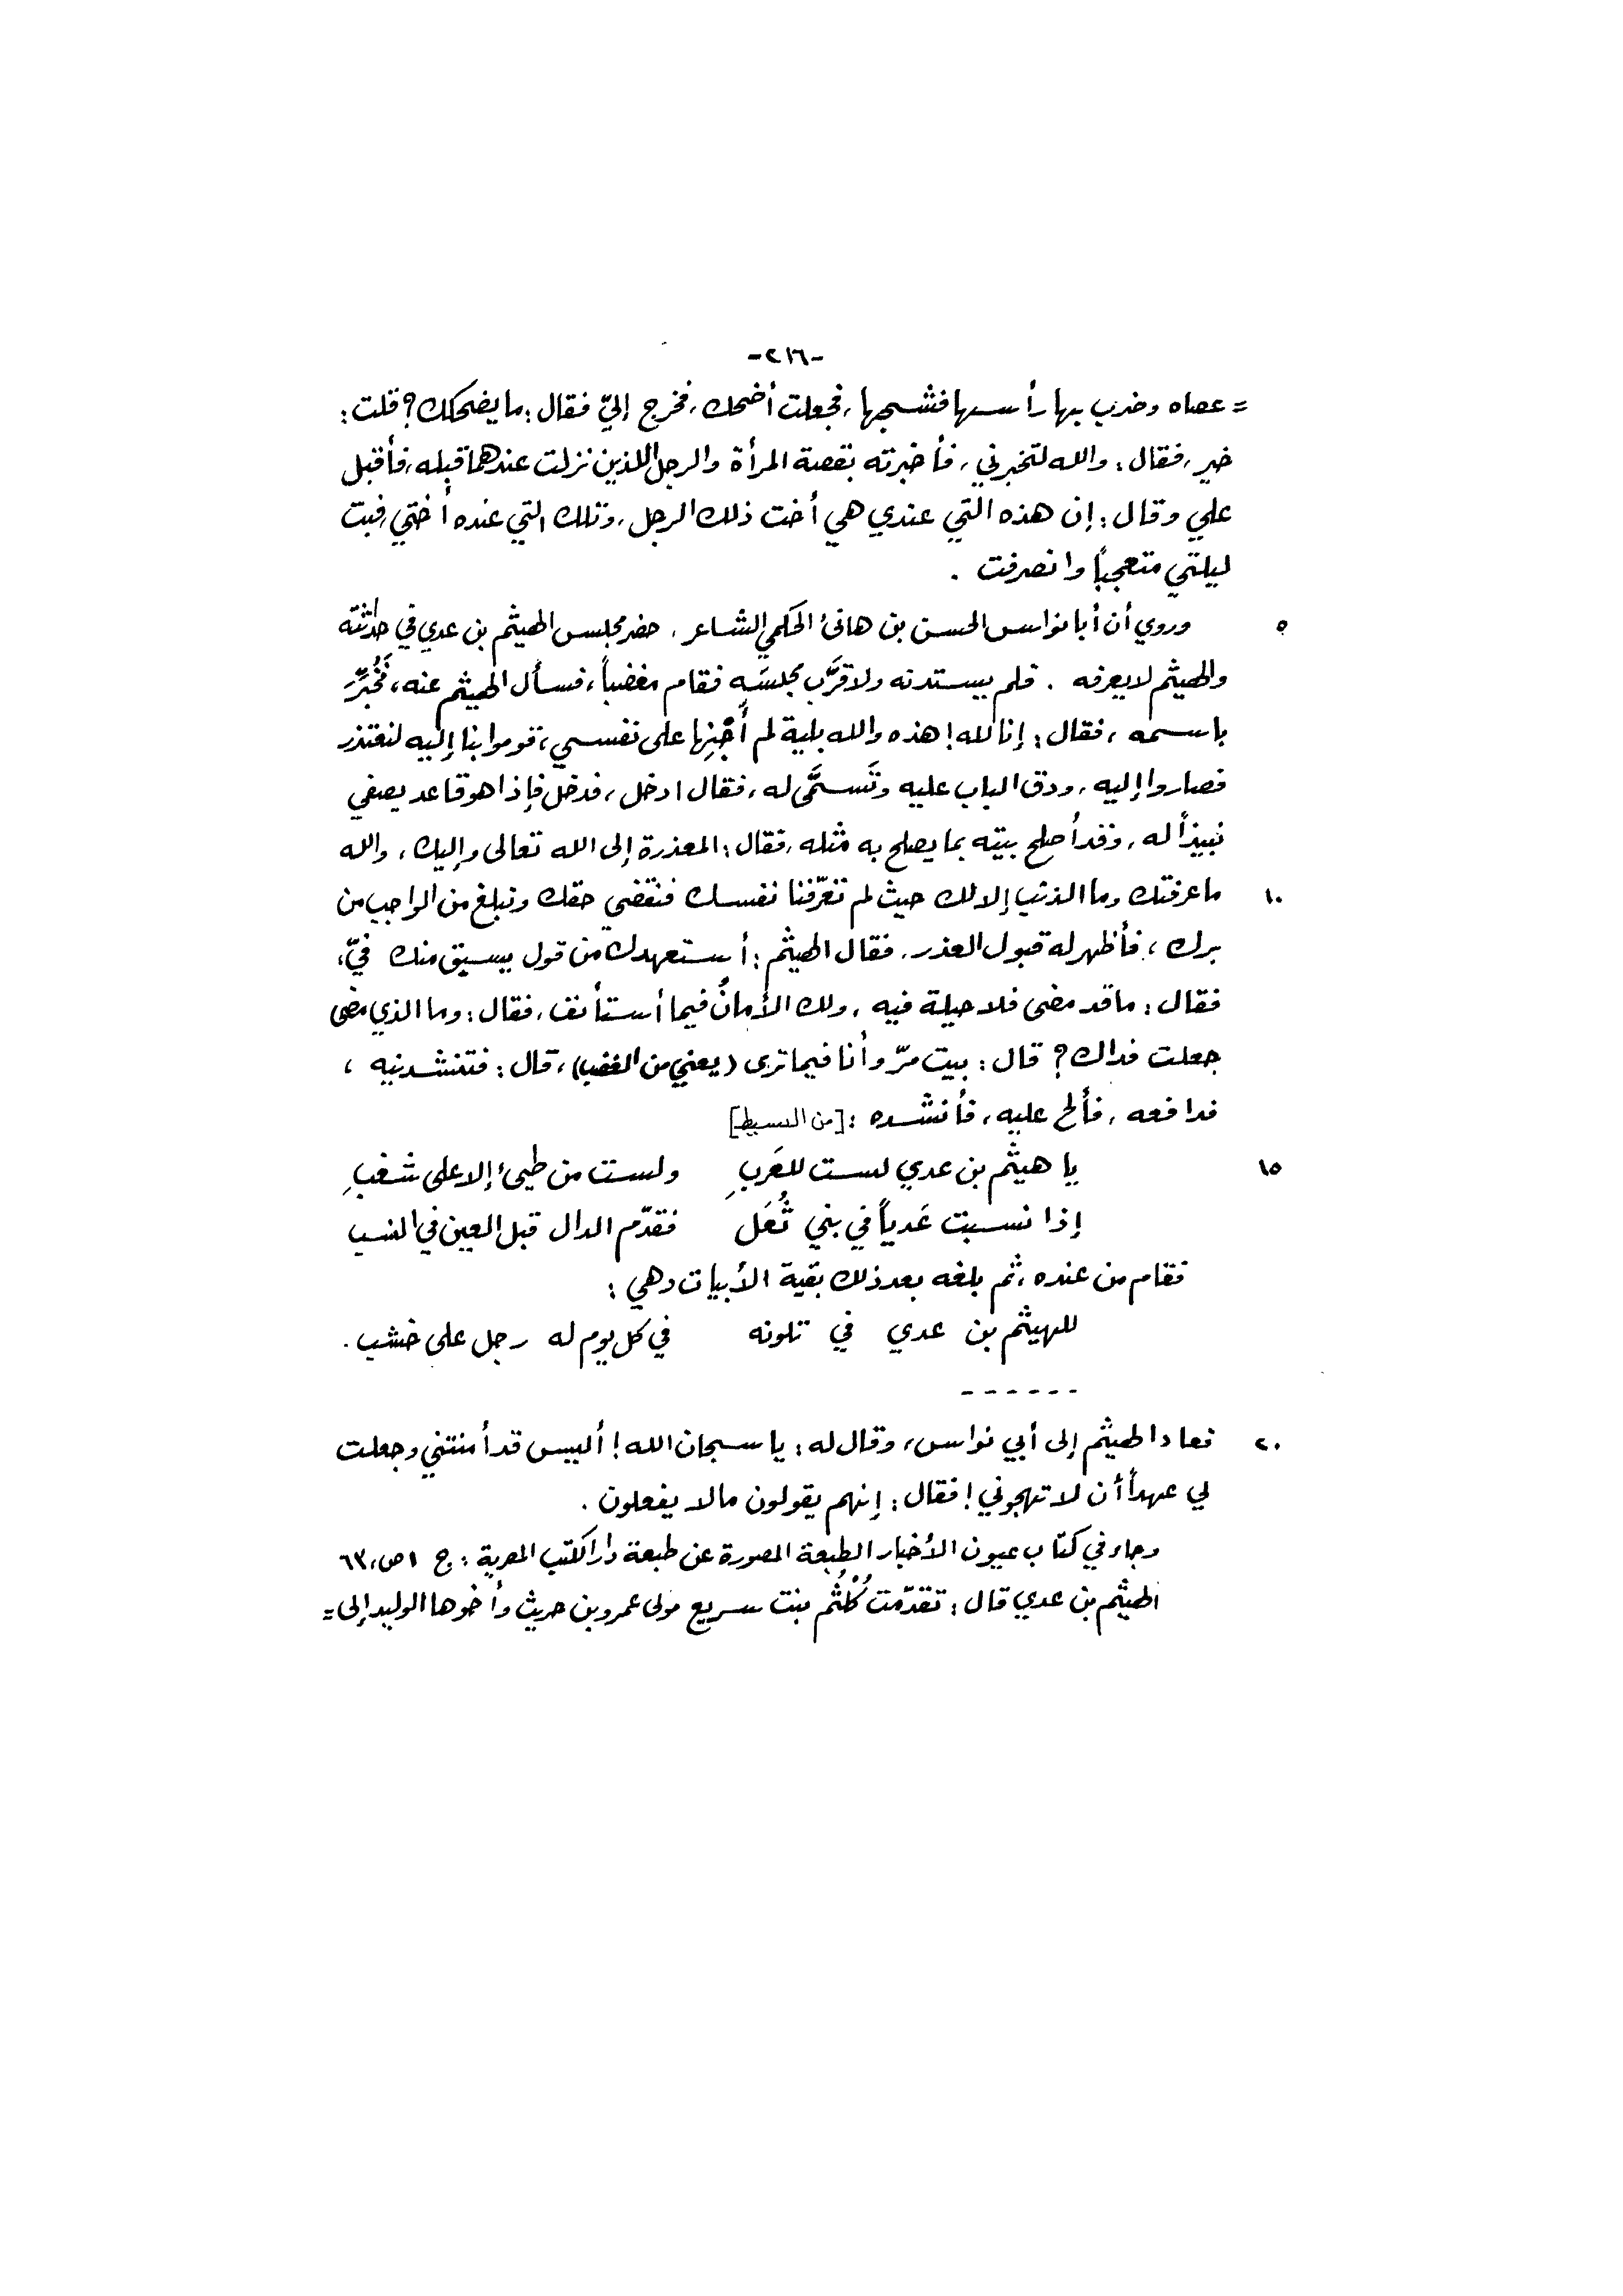 -٢١٦-
= عصاه وضرب بها رأسها فشجها، فجعلت أضحك، فخرج إليّ فقال: ما يضحكك؟ قلت:
خير، فقال: والله لتخبرني، فأخبرته بقصة المرأة والرجل اللذين نزلت عندهما قبله، فأقبل
علي وقال: إن هذه التي عندي هي أخت ذلك الرجل، وتلك التي عنده أختي، فبت
ليلتي متعجباً وانصرفت .
٥ وروي أن أبا نواس الحسن بن هانئ الحكمي الشاعر، حضر مجلس الهيثم بن عدي في حداثته
والهيثم لا يعرفه . فلم يستدنه ولا قرَّب مجلسَه فقام مغضباً، فسأل الهيثم عنه، فَخُبِّرَ
باسمه، فقال: إنا لله! هذه والله بلية لم أَجْنِها على نفسي، قوموا بنا إليه لنعتذر
فصاروا إليه، ودق الباب عليه وتَسمَّى له، فقال ادخل، فدخل فإذا هو قاعد يصفي
نبيذاً له، وقد أصلح بيته بما يصلح به مثله، فقال: المعذرة إلى الله تعالى وإليك، والله
١٠ ما عرفتك وما الذنب إلا لك حيث لم تعرّفنا نفسك فنقضي حقك ونبلغ من الواجب من
برك، فأظهر له قبول العذر، فقال الهيثم: أستعهدك من قول يسبق منك فيّ،
فقال: ما قد مضى فلا حيلة فيه، ولك الأمانُ فيما أستأنف، فقال: وما الذي مضى
جعلت فداك؟ قال: بيت مرّ وأنا فيما ترى (يعني من الغضب)، قال: فتنشدنيه،
فدافعه، فألح عليه، فأنشده: [من البسيط]
١٥ يا هيثم بن عدي لست للعَربِ ولست من طيئ إلا على شغبِ
إذا نسبت عَدياً في بني ثُعَل فقدّم الدال قبل العين في النسب
فقام من عنده، ثم بلغه بعد ذلك بقية الأبيات وهي:
للهيثم بن عدي في تلونه في كل يوم له رجل على خشب .
- - - - - -
٢٠ فعاد الهيثم إلى أبي نواس، وقال له: يا سبحان الله! أليس قد أمنتني وجعلت
لي عهداً أن لا تهجوني! فقال: إنهم يقولون ما لا يفعلون .
وجاء في كتاب عيون الأخبار الطبعة المصورة عن طبعة دار الكتب المصرية: ج ١ ص، ٦٣
الهيثم بن عدي قال: تقدّمت كُلْثُم بنت سريع مولى عمرو بن حريث وأخوها الوليد إلى =